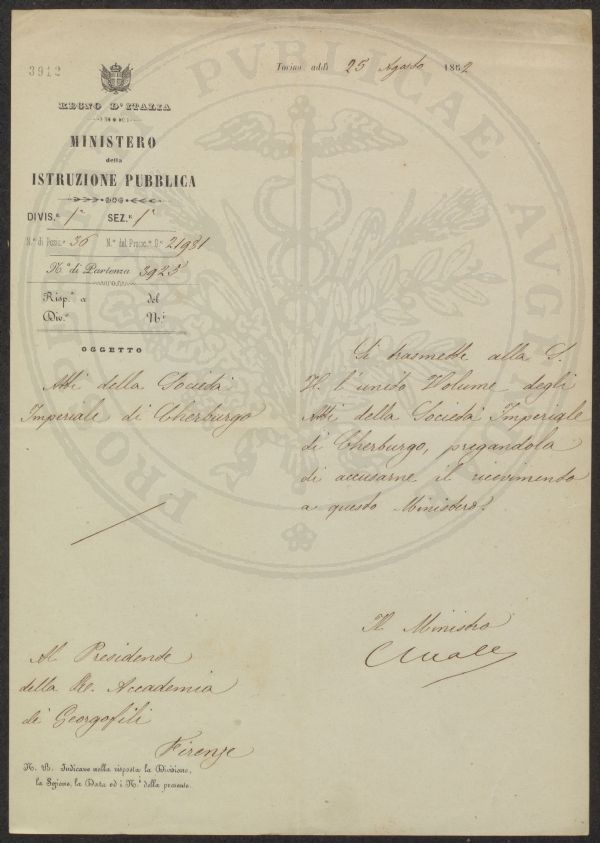 3912
Torino, addì 25 Agosto 1862
REGNO D'ITALIA
MINISTERO
della
ISTRUZIONE PUBBLICA
DIVIS.e 1a SEZ.e 1a
N.o di Posiz.e 36 N.o del Protoc.o G.e 21931
N.o di Partenza 3925
Risp.a a del
Div.e N.o
OGGETTO
Atti della Società
Imperiale di Cherburgo
Si trasmette alla S.
V. l'unito Volume degli
Atti della Società Imperiale
di Cherburgo, pregandola
di accusarne il ricevimento
a questo Ministero.
Il Ministro
Al Presidente
della R. Accademia
dei Georgofili
Firenze
N. B. Indicare nella risposta la Divisione,
la Sezione, la Data ed i N.i della presente.
PRO BONE PVBLICAE AVGE